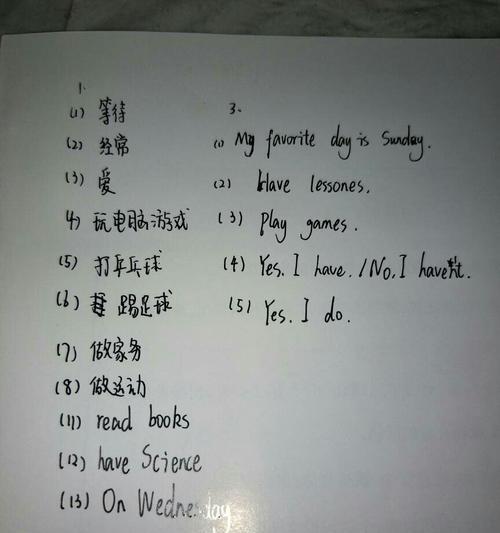 1.
(1) 等待
(2) 经常
(3) 爱
4) 玩电脑游戏
(5) 打乒乓球
(6) 踢足球
(7) 做家务
(8) 做运动
(11) read books
(12) have Science
(13) On Wednesday
3.
(1) My favorite day is Sunday.
(2) Have lessones.
(3) Play games.
(4) Yes, I have. / No, I haven't.
(5) Yes. I do.